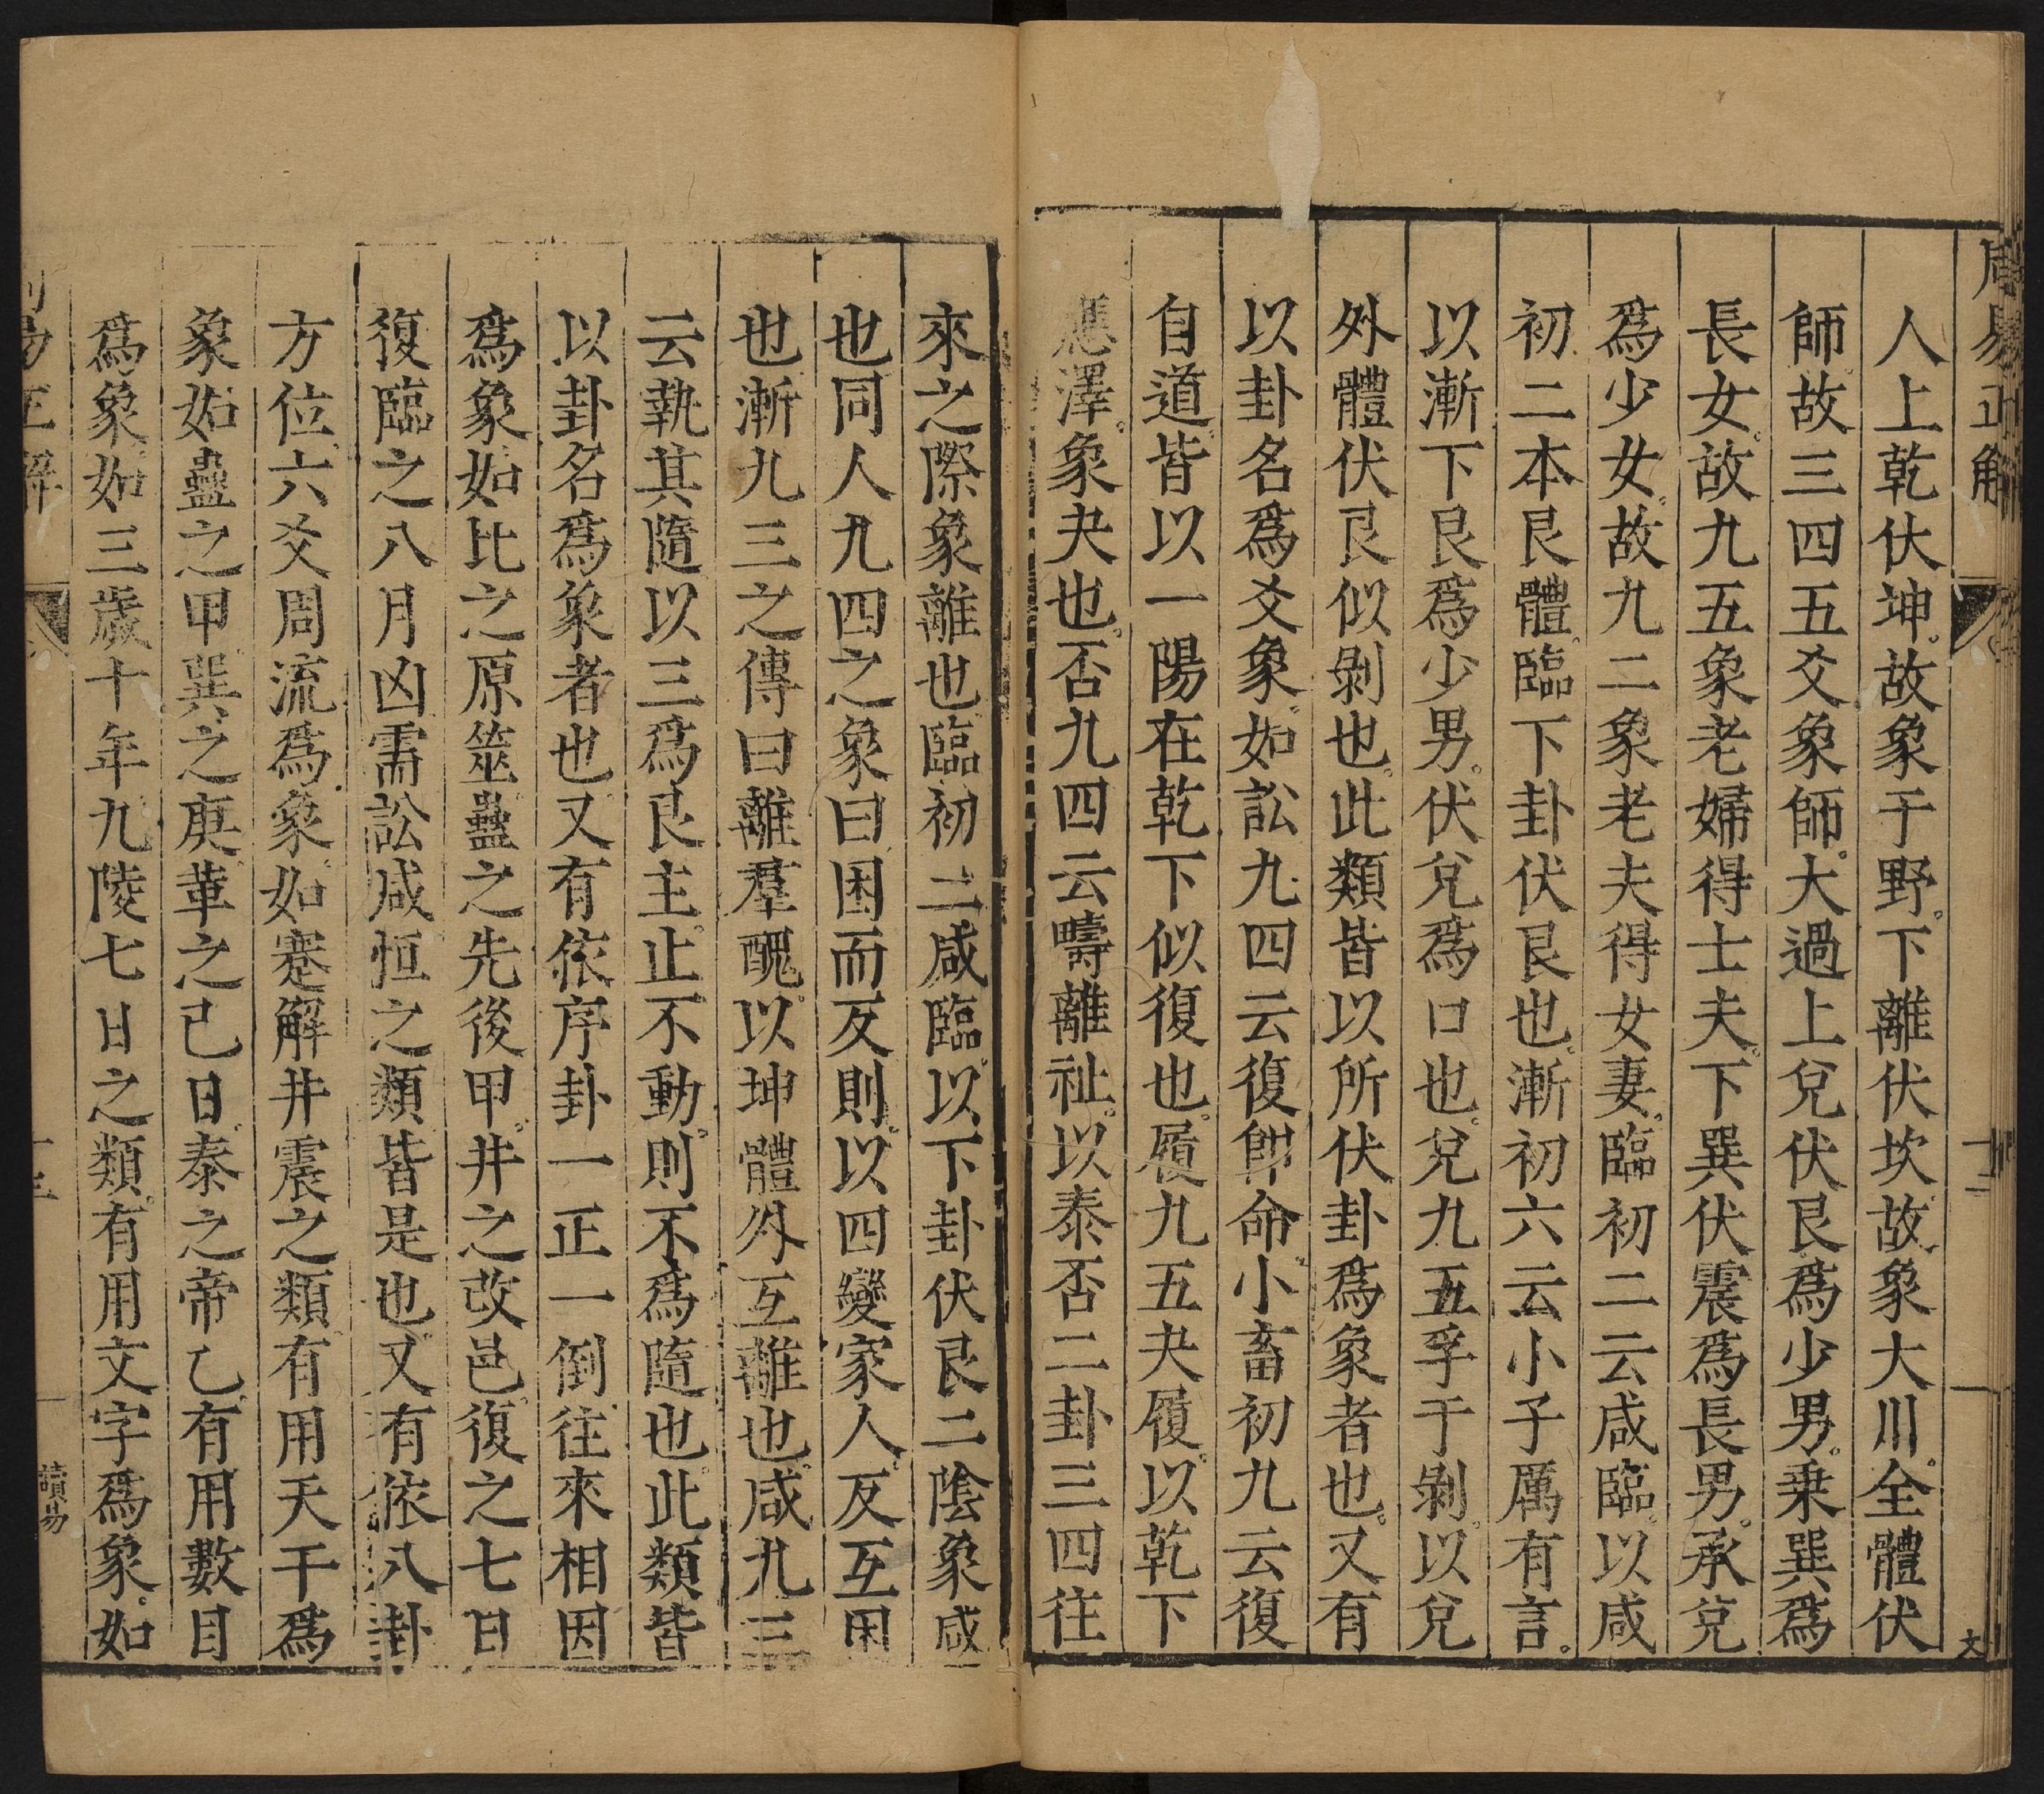 周易正解
十二
文
人上乾伏坤。故象于野。下離伏坎。故象大川。全體伏
師。故三四五爻象師。大過上兌伏艮爲少男。乗巽爲
長女。故九五象老婦得士夫。下巽伏震爲長男。承兌
爲少女。故九二象老夫得女妻。臨初二云咸臨。以咸
初二本艮體。臨下卦伏艮也。漸初六云小子厲有言。
以漸下艮爲少男。伏兌爲口也。兌九五孚于剝。以兌
外體伏艮似剝也。此類皆以所伏卦爲象者也。又有
以卦名爲爻象。如訟九四云復卽命。小畜初九云復
自道。皆以一陽在乾下似復也。履九五夬履。以乾下
應澤。象夬也。否九四云疇離祉。以泰否二卦三四往
來之際象離也。臨初二咸臨。以下卦伏艮二陰象咸
也。同人九四之象曰困而反則。以四變家人。反互困
也。漸九三之傳曰離羣醜。以坤體外互離也。咸九三
云執其隨。以三爲艮主。止不動。則不爲隨也。此類皆
以卦名爲象者也。又有依序卦一正一倒往來相因
爲象。如比之原筮。蠱之先後甲。井之改邑。復之七日
復。臨之八月凶。需訟咸恒之類皆是也。又有依八卦
方位。六爻周流爲象。如蹇解井震之類。有用天干爲
象。如蠱之甲。巽之庚。革之已日。泰之帝乙。有用數目
爲象。如三歲十年九陵七日之類。有用文字爲象。如
易正解
讀易